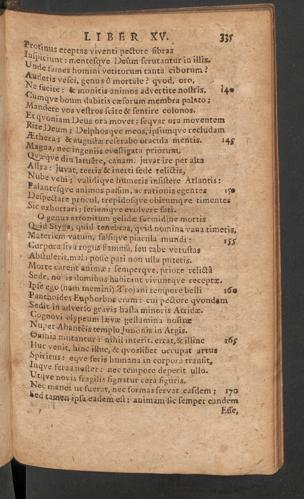 LIBER XV. 335
Protinus ereptas viventi pectore fibras
Inspiciunt: mentesque Deûm scrutantur in illis.
Unde fames homini vetitorum tanta ciborum?
Audetis vesci, genus ô mortale? quod, oro,
Ne facite: & monitis animos advertite nostris. 140
Cumque boum dabitis cæsorum membra palato;
Mandere vos vestros scite & sentire colonos.
Et quoniam Deus ora movet; sequar ora moventem
Rite Deum; Delphosque meos, ipsumque recludam
Æthera; & augustæ reserabo oracula mentis. 145
Magna, nec ingeniis evestigata priorum,
Quæque diu latuêre, canam. juvat ire per alta
Astra: juvat, terris & inerti sede relictis,
Nube vehi; validique humeris insistere Atlantis:
Palantesque animos passim, ac rationis egentes 150
Despectare procul, trepidosque obitumque timentes
Sic exhortari: seriemque evolvere fati.
O genus attonitum gelidæ formidine mortis
Quid Styga, quid tenebras, quid nomina vana timetis,
Materiem vatum, falsique piacula mundi: 155
Corpora sive rogus flamma, seu tabe vetustas
Abstulerit, mala posse pati non ulla putetis.
Morte carent animæ: semperque, priore relictâ
Sede, novis domibus habitant vivuntque receptæ.
Ipse ego (nam memini) Trojani tempore belli 160
Panthoides Euphorbus eram: cui pectore quondam
Sedit in adverso gravis hasta minoris Atridæ.
Cognovi clypeum lævæ gestamina nostræ
Nuper Abantêis templo Junonis in Argis.
Omnia mutantur: nihil interit. errat, & illinc 165
Huc venit, hinc illuc, & quoslibet occupat artus
Spiritus: eque feris humana in corpora transit,
Inque feras noster: nec tempore deperit ullo.
Utque novis fragilis signatur cera figuris,
Nec manet ut fuerat, nec formas servat easdem; 170
Sed tamen ipsa eadem est: animam sic semper eandem
Esse,